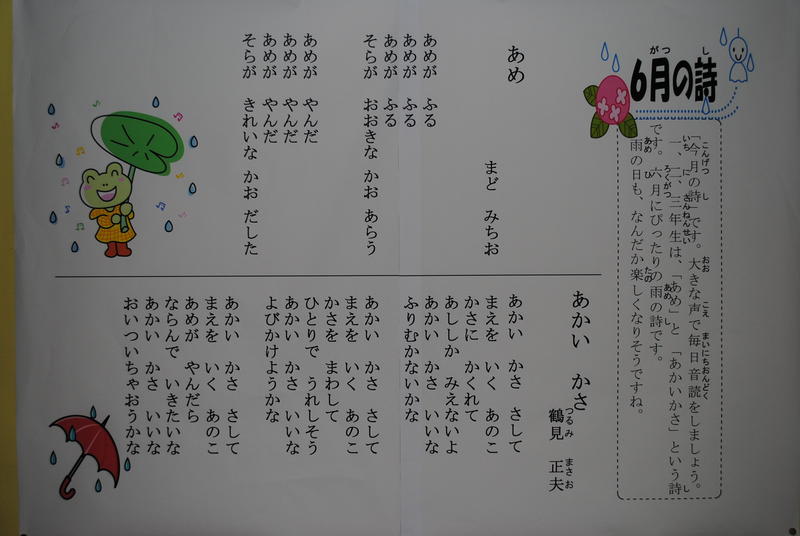 6月の詩
「今月の詩」です。大きな声で毎日音読をしましょう。
一、二、三年生は、「あめ」と「あかいかさ」という詩
です。六月にぴったりの雨の詩です。
雨の日も、なんだか楽しくなりそうですね。
あめ
まど みちお
あめが ふる
あめが ふる
あめが ふる
そらが おおきな かお あらう
あめが やんだ
あめが やんだ
あめが やんだ
そらが きれいな かお だした
あかい かさ
鶴見 正夫
あかい かさ さして
まえを いく あのこ
かさに かくれて
あししか みえないよ
あかい かさ いいな
ふりむかないかな
あかい かさ さして
まえを いく あのこ
かさを まわして
ひとりで うれしそう
あかい かさ いいな
よびかけようかな
あかい かさ さして
まえを いく あのこ
あめが やんだら
ならんで いきたいな
あかい かさ いいな
おいついちゃおうかな